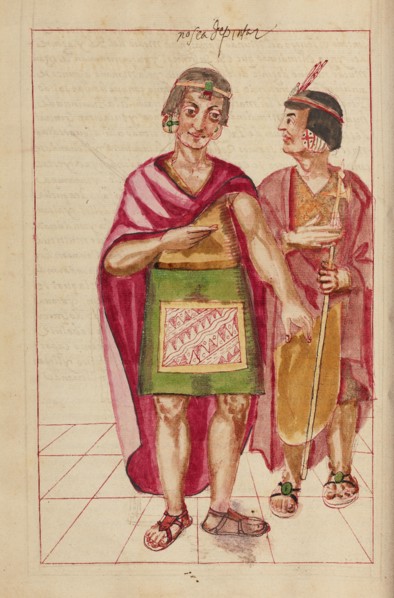 no sea depintar